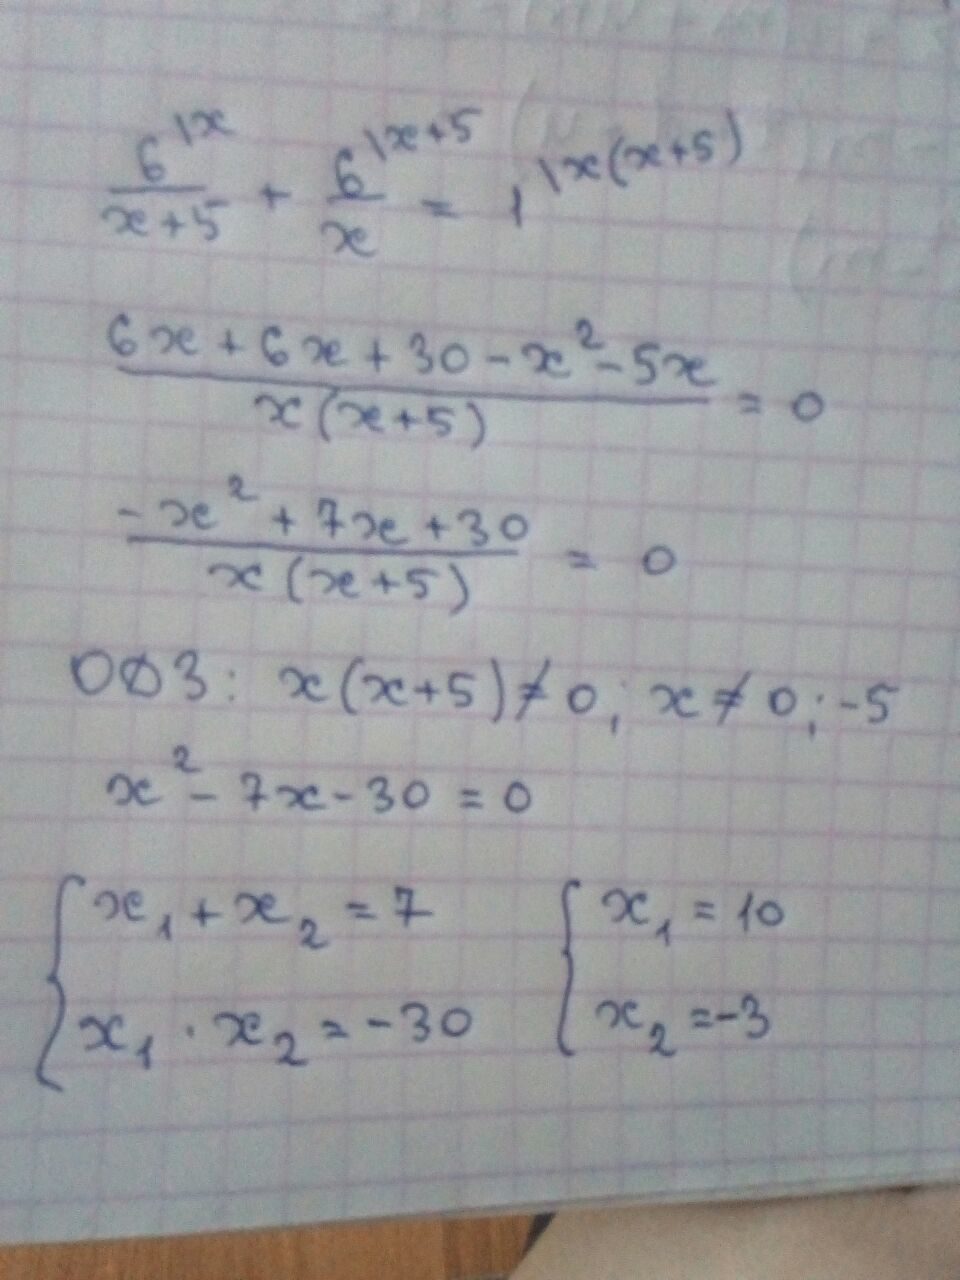 6^{|x}/(x+5) + 6^{|x+5}/x = 1^{|x(x+5)}
(6x + 6x + 30 - x² - 5x)/(x(x+5)) = 0
(-x² + 7x + 30)/(x(x+5)) = 0
ОДЗ: x(x+5) ≠ 0; x ≠ 0; -5
x² - 7x - 30 = 0
{ x₁ + x₂ = 7 { x₁ = 10
x₁ · x₂ = -30 x₂ = -3